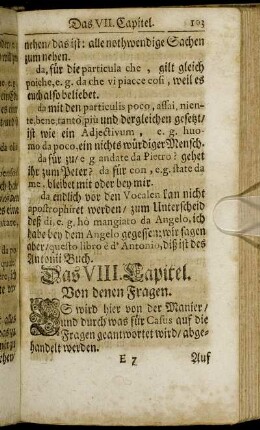 Das VII. Capitel. 103
nehen/ das ist: alle nothwendige Sachen
zum nehen.
da, für die particula che, gilt gleich
poiche, e.g. da che vi piacce così, weil es
euch also beliebet.
da mit den particulis poco, assai, nien-
te, bene, tanto, più und dergleichen gesetzt/
ist wie ein Adjectivum, e.g. huo-
mo da poco, ein nichts würdiger Mensch.
da für zu/ e g andate da Pietro? gehet
ihr zum Peter? da für con, e.g. state da
me, bleibet mit oder bey mir.
da endlich vor den Vocalen kan nicht
apostrophiret werden/ zum Unterscheid
deß di, e.g. hò mangiato da Angelo, ich
habe bey dem Angelo gegessen; wir sagen
aber/ questo libro è d' Antonio, diß ist des
Antonii Buch.
Das VIII. Capitel.
Von denen Fragen.
ES wird hier von der Manier/
und durch was für Casus auf die
Fragen geantwortet wird/ abge-
handelt werden.
E 7 Auf